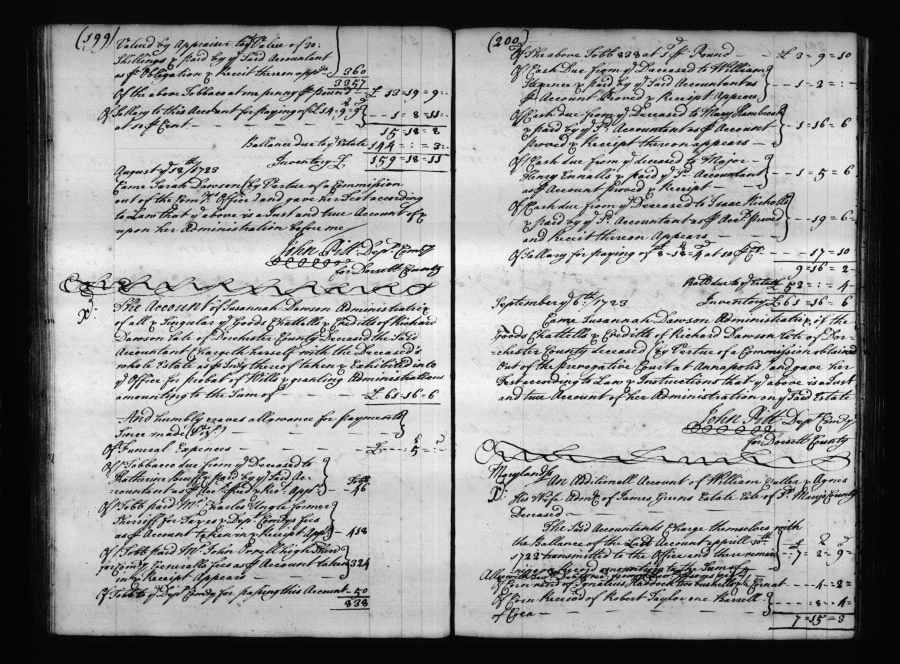 (199)
Valued by Appraisers to ye Value of 30:
Shillings & paid by ye Said Accountant
as pr Obligation & Receit thereon apprs 360
3357
Of the above Tobbacco at one penny pr pound £ 13=19=9=
Of Sallary to this Account for paying of £14=9=9
at 10 pr Cent 1=8=11=
15=18=8
Ballance due to ye Estate 144=:=3=
Inventory £ 159=18=11
August ye 12th 1723
Came Sarah Dawson (by Vertue of a Commission
out of the Comrys Office) and gave her Test according
to Law that ye above is a Just and true Account of &
upon her Administration before me
John Pitt Depty Comry
for Dorsett County
The Account of Susannah Dawson Administratrix
of all & Singular ye Goods Chattells & Creditts of Richard
Dawson Late of Dorchester County Deceased the Said
Accountant Chargeth herself with the Deceased's
whole Estate as pr Invty thereof taken & Exhibited into
ye Office for probat of Wills & granting Administrations
amounting to the Sum of £ 61=16=6
And humbly craves allowance for payments
Since made (Vizt)
Of Funeral Expences £ 5
Of Tobbacco due from ye Deceased to
Katherine & paid by ye Said Ac=
countant as pr Acct prfd & Rect Apprs 46
Of Tobb paid Mr Charles Ungle former
Sherriff for Taxes & Depty Comrys fees
as pr Account taken in & Receit Apprs 418
Of Tobb paid Mr John high Sherr
for Comry Generalls fees as pr Account taken 324
in & Receipt Appears
Of Tobb to ye Depty Comry for passing this Account 50
838
(200)
Of the above Tobb 838 at 1d pr Pound £ 3=9=10
Of Cash Due from ye Deceased to William
& paid by ye Said Accountant as 1=2=:
pr Account Proved & Receipt Appears
Of Cash due from ye Deceased to Mary Hambrook
& paid by ye Sd Accountant as pr Account 1=16=6
proved & Receipt thereon appears
Of Cash due from ye deceased to Major
Henry Ennalls & paid ye Sd Accountant 1=5=6
as pr Account proved & Receipt
Of Cash due from ye Deceased to Isaac Nicholls
& paid by ye Sd Accountant as pr Acct proved =19=6=
and Receit thereon Appears
Of Sallary for paying of 8=18=4 at 10 pr Ct 17=10
9=16=2
Balla due to ye Estate 52=:=4
September ye 6th 1723 Inventory £ 61=16=6
Came Susannah Dawson Administratrix of the
Goods Chattells & Creditts of Richard Dawson Late of Dor=
chester County deceased (by Vertue of a Commission obtained
Out of the prerogative Court at Annapolis) and gave her
Test according to Law & Instructions that ye above is a Just
and true Account of her Administration on ye Said Estate
John Pitt Depty Comry
for Dorsett County
Maryland
An Additionall Account of William & Agnes
his Wife Admrx of James Greens Estate Late of St Marys County
Deceased
The Said Accountants Charge themselves with
the Ballance of the Last Account Aprill
1722 transmitted to the Office and there 7=2=9
Record amounting to the Sum of
bushells of Corn at 4=2=
Of Corn Received of Robert Taylor one Barrell 8=4=
of Corn
7=15=3